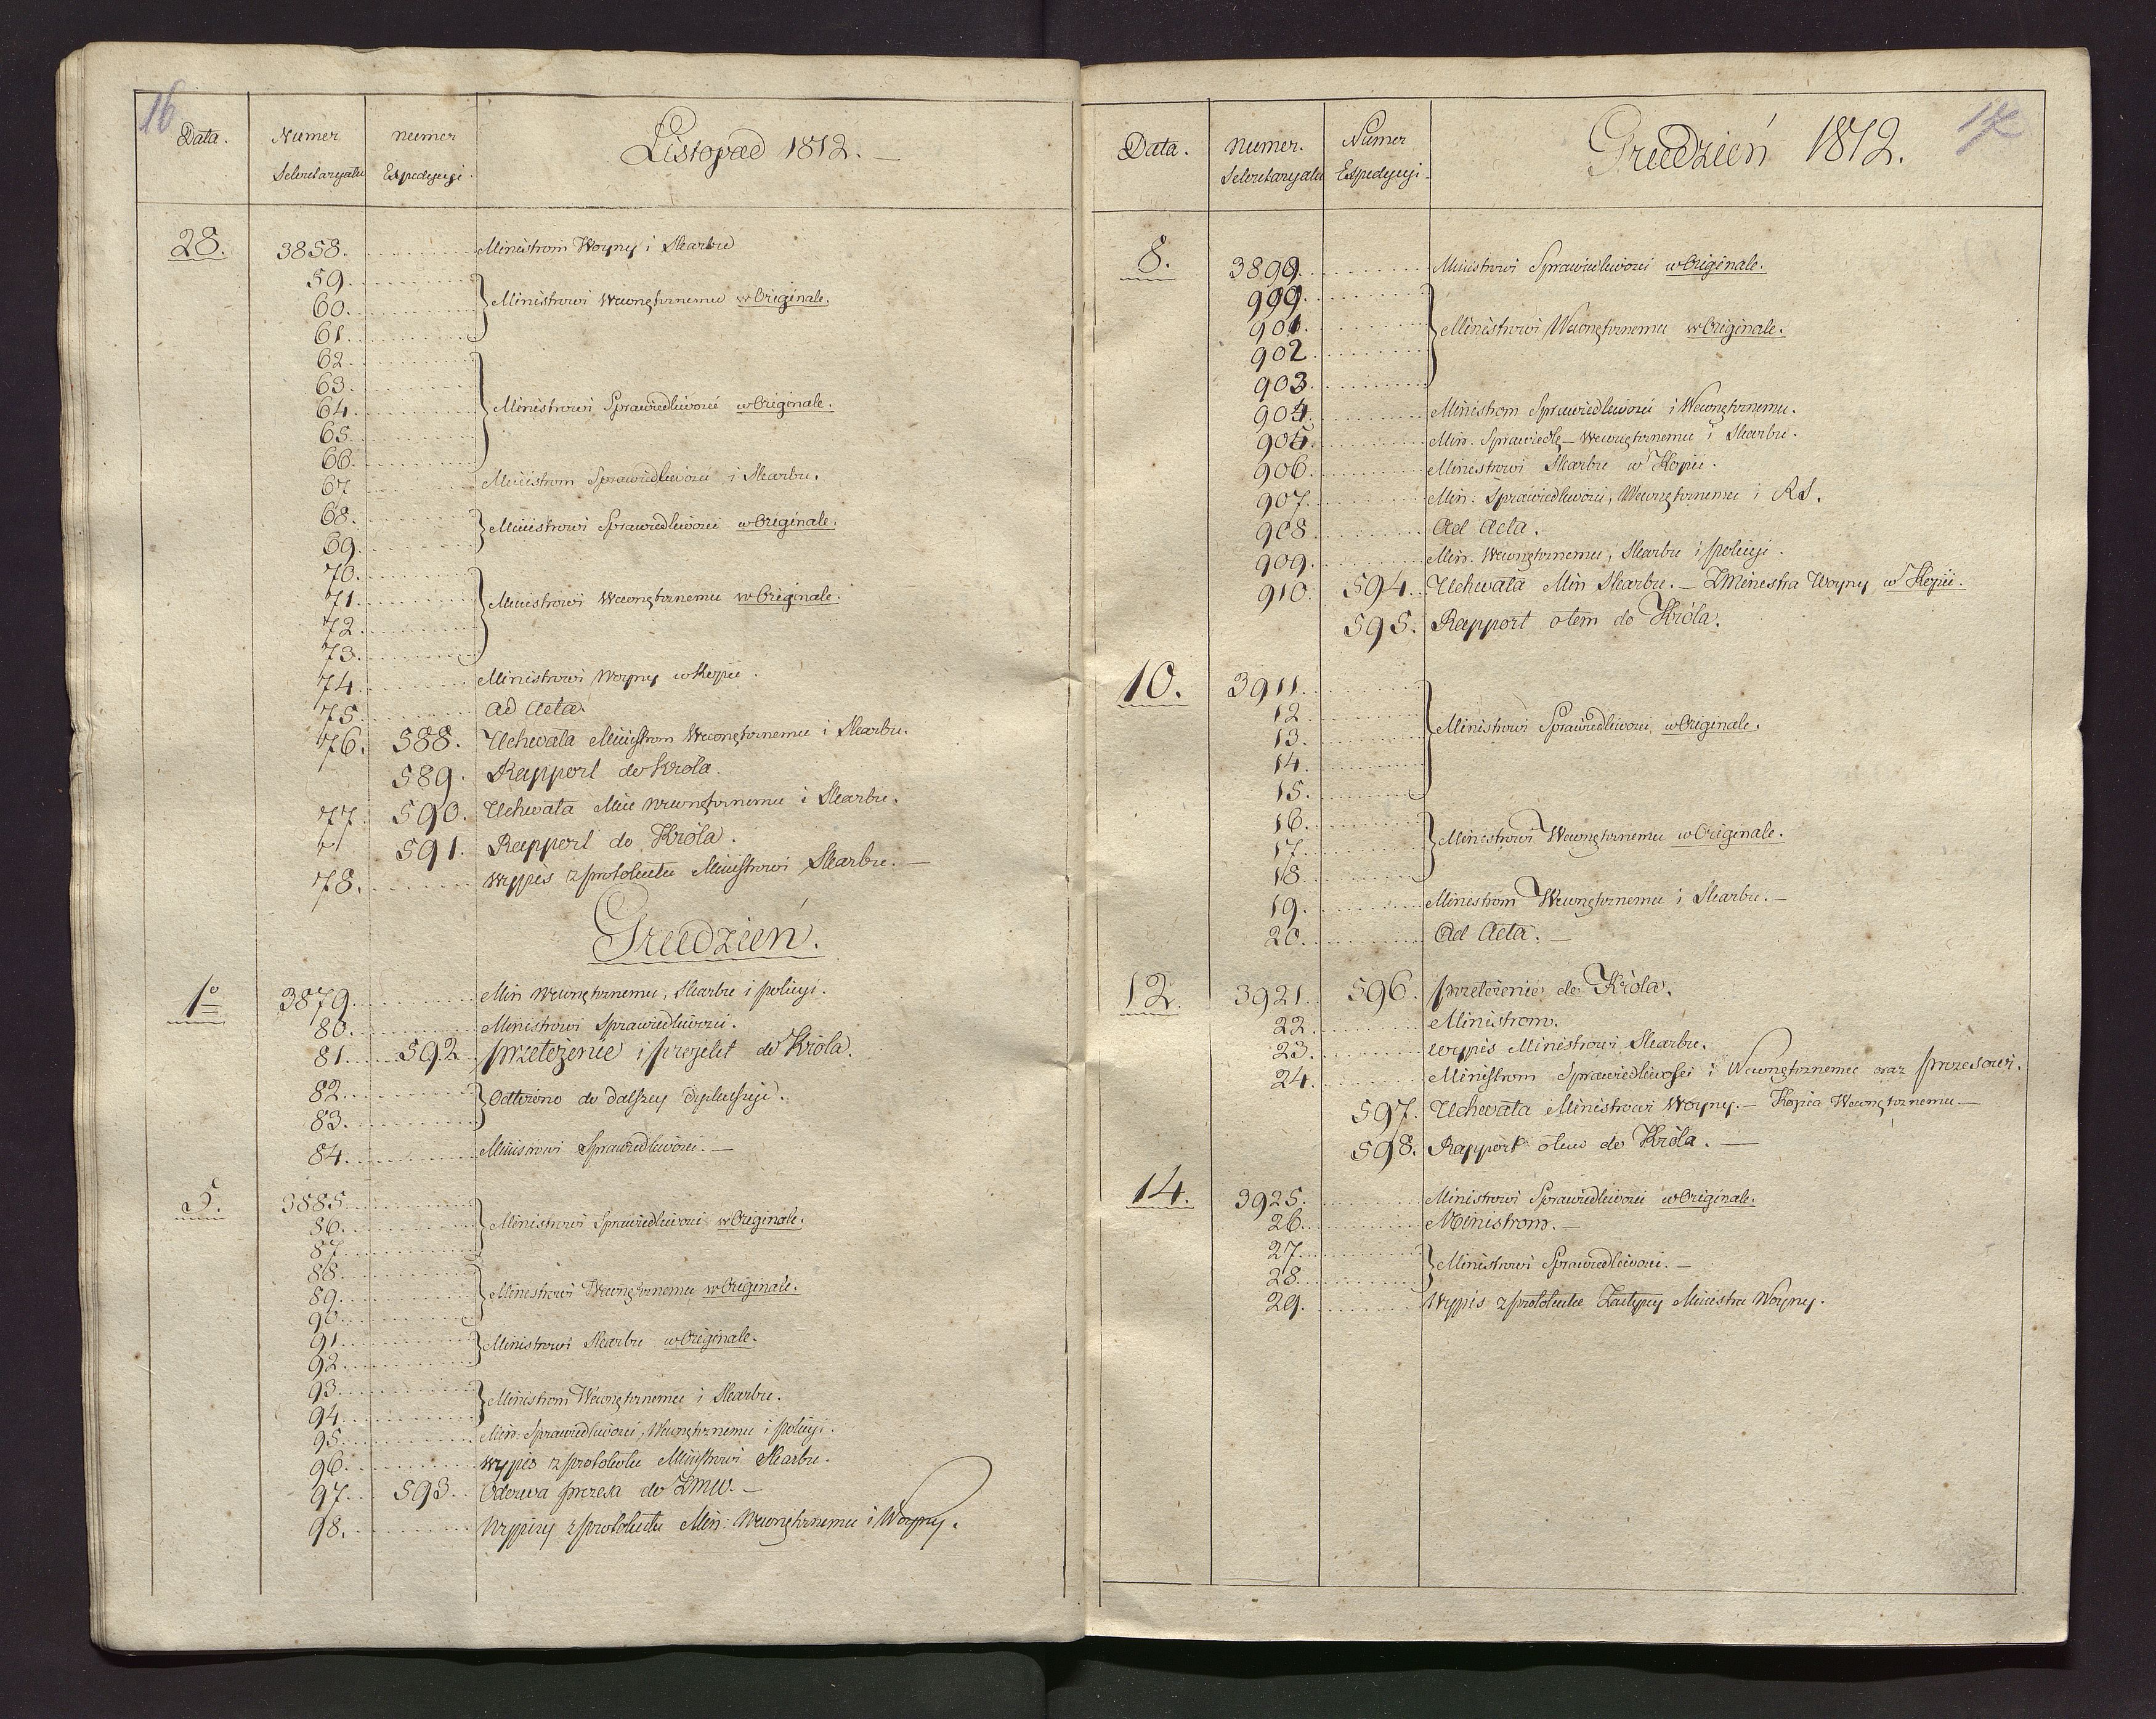 16
Data. Numer Sekretaryatu numer Expedycyi. Listopad 1812. —
28. 3858. Ministrom Woyny i Skarbu
59.
60. Ministrowi Wewnętrznemu w Originale.
61.
62.
63.
64. Ministrowi Sprawiedliwości w Originale.
65.
66.
67. Ministrom Sprawiedliwości i Skarbu.
68. Ministrowi Sprawiedliwości w Originale.
69.
70.
71. Ministrowi Wewnętrznemu w Originale.
72.
73.
74. Ministrowi Woyny w Kopii.
75. ad Acta.
76. 588. Uchwała Ministrom Wewnętrznemu i Skarbu.
589. Rapport do Króla.
77. 590. Uchwała Min Wewnętrznemu i Skarbu.
591. Rapport do Króla.
78. Wypis z protokułu Ministrowi Skarbu. —
Grudzień.
1º 3879. Min Wewnętrznemu, Skarbu i policyi.
80. Ministrowi Sprawiedliwości.
81. 592 przełożenie i projekt do Króla.
82. Odłożono do dalszey dyskussyi.
83.
84. Ministrowi Sprawiedliwości. —
5. 3885.
86. Ministrowi Sprawiedliwości w Originale.
87.
88.
89. Ministrowi Wewnętrznemu w Originale.
90.
91. Ministrowi Skarbu w Originale.
92.
93. Ministrom Wewnętrznemu i Skarbu.
94.
95. Min: Sprawiedliwości, Wewnętrznemu i policyi.
96. Wypis z protokułu Ministrowi Skarbu.
97. 593. Odezwa prezesa do ZMW. —
98. Wypisy z protokułu Min: Wewnętrznemu i Woyny.
17
Data. numer. Sekretaryatu Numer Expedycyi. Grudzień 1812.
8. 3899. Ministrowi Sprawiedliwości w Originale.
999.
901. Ministrowi Wewnętrznemu w Originale.
902
903
904. Ministrom Sprawiedliwości i Wewnętrznemu.
905. Min. Sprawiedlę — Wewnętrznemu i Skarbu.
906. Ministrowi Skarbu w Kopii.
907. Min: Sprawiedliwości, Wewnętrznemu i RS.
908 Ad Acta.
909. Min. Wewnętrznemu, Skarbu i policyi.
910. 594. Uchwała Min Skarbu. — ZMinistra Woyny w Kopii.
595. Rapport o tem do Króla.
10. 3911.
12
13. Ministrowi Sprawiedliwości w Originale.
14.
15.
16.
17. Ministrowi Wewnętrznemu w Originale.
18.
19. Ministrom Wewnętrznemu i Skarbu. —
20. Ad Acta. —
12. 3921. 596. przełożenie do Króla.
22. Ministrom.
23. Wypis Ministrowi Skarbu.
24. Ministrom Sprawiedliwości i Wewnętrznemu oraz prezesowi.
597. Uchwała Ministrowi Woyny. — Kopia Wewnętrznemu —
598. Rapport o tem do Króla. —
14. 3925. Ministrowi Sprawiedliwości w Originale.
26. Ministrom. —
27. Ministrowi Sprawiedliwości. —
28.
29. Wypis z protokułu Zastępcy Ministra Woyny.